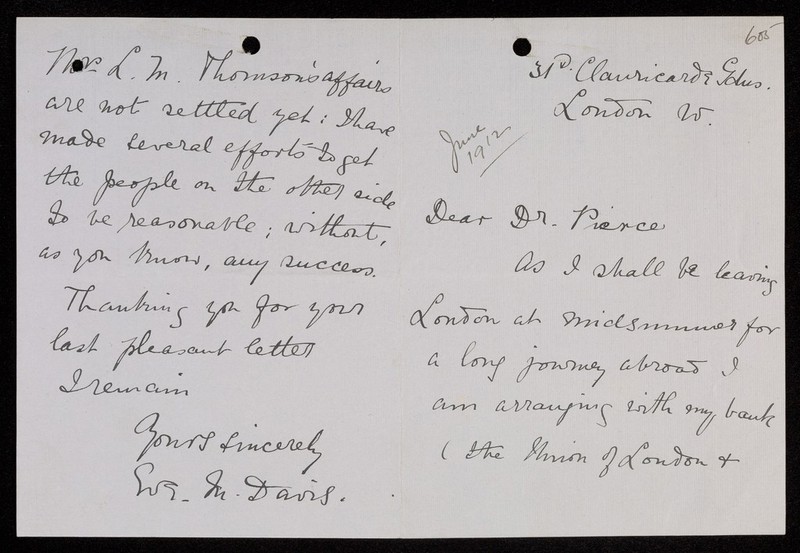 605
31 Clanricarde Gdns.
London W.
June
1912
Dear Dr. Pierce
As I shall be leaving
London at midsummer for
a long journey abroad I
am arranging with my bank
( the Union of London &
Mrs L. M. Thomson's affairs
are not settled yet: I have
made several efforts to get
the people on the other side
to be reasonable; without,
as you know, any success.
Thanking you for your
last pleasant letter
I remain
Yours sincerely
M. Davis.